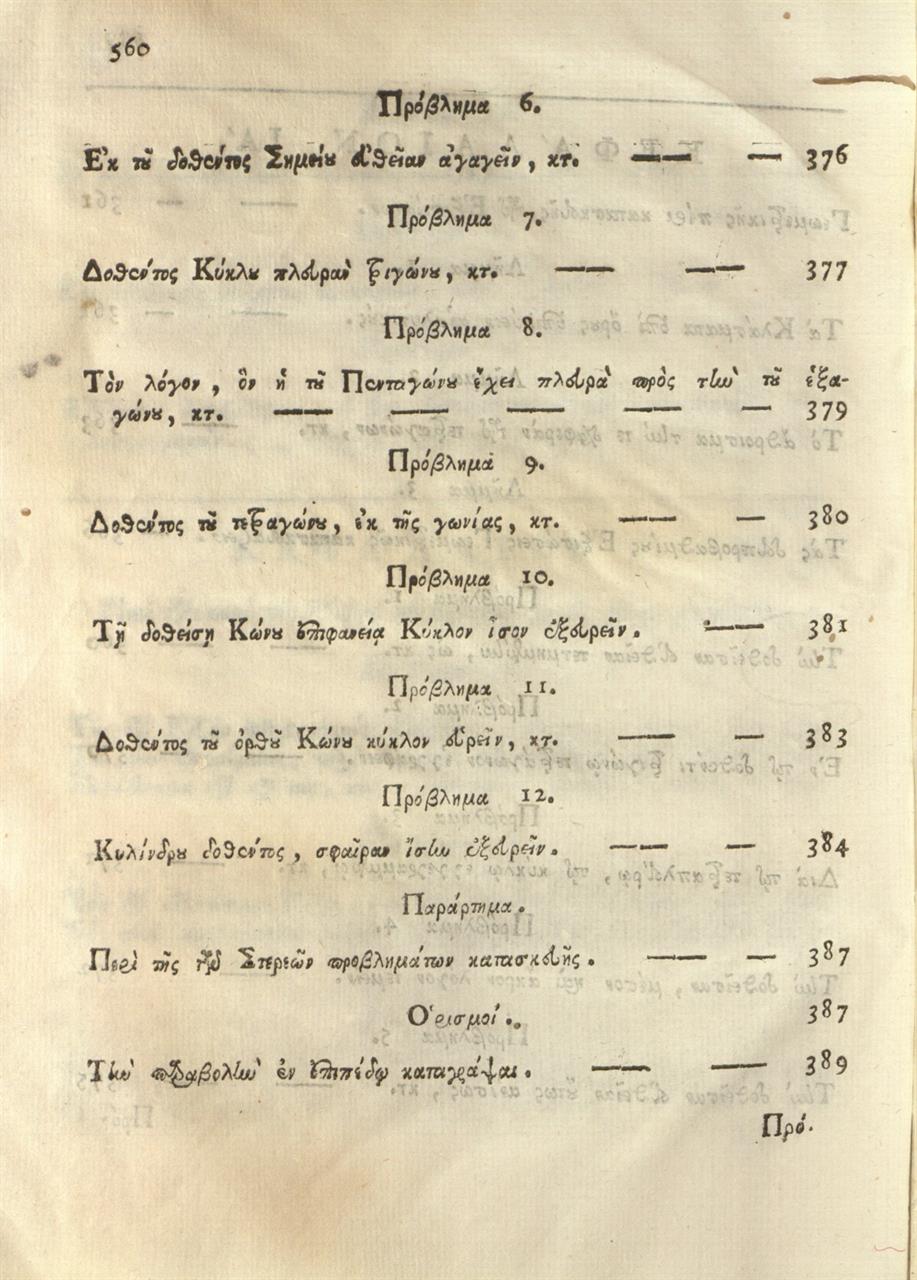 560
Πρόβλημα 6.
Ἐκ τοῦ δοθέντος Σημείου εὐθεῖαν ἀγαγεῖν, κτ. — — 376
Πρόβλημα 7.
Δοθέντος Κύκλου πλευρὰν τριγώνου, κτ. — — 377
Πρόβλημα 8.
Τὸν λόγον, ὃν ἡ τοῦ Πενταγώνου ἔχει πλευρὰ πρὸς τὴν τοῦ ἑξα-
γώνου, κτ. — — — — — 379
Πρόβλημα 9.
Δοθέντος τοῦ τετραγώνου, ἐκ τῆς γωνίας, κτ. — — 380
Πρόβλημα 10.
Τῇ δοθείσῃ Κώνου ἐπιφανείᾳ Κύκλον ἶσον ἐξευρεῖν. — 381
Πρόβλημα 11.
Δοθέντος τοῦ ὀρθοῦ Κώνου κύκλον εὑρεῖν, κτ. — — 383
Πρόβλημα 12.
Κυλίνδρου δοθέντος, σφαῖραν ἴσην ἐξευρεῖν. — — 384
Παράρτημα.
Περὶ τῆς τῶν Στερεῶν προβλημάτων κατασκευῆς. — — 387
Ὁρισμοί. 387
Τὴν παραβολὴν ἐν ἐπιπέδῳ καταγράψαι. — — 389
Πρό.